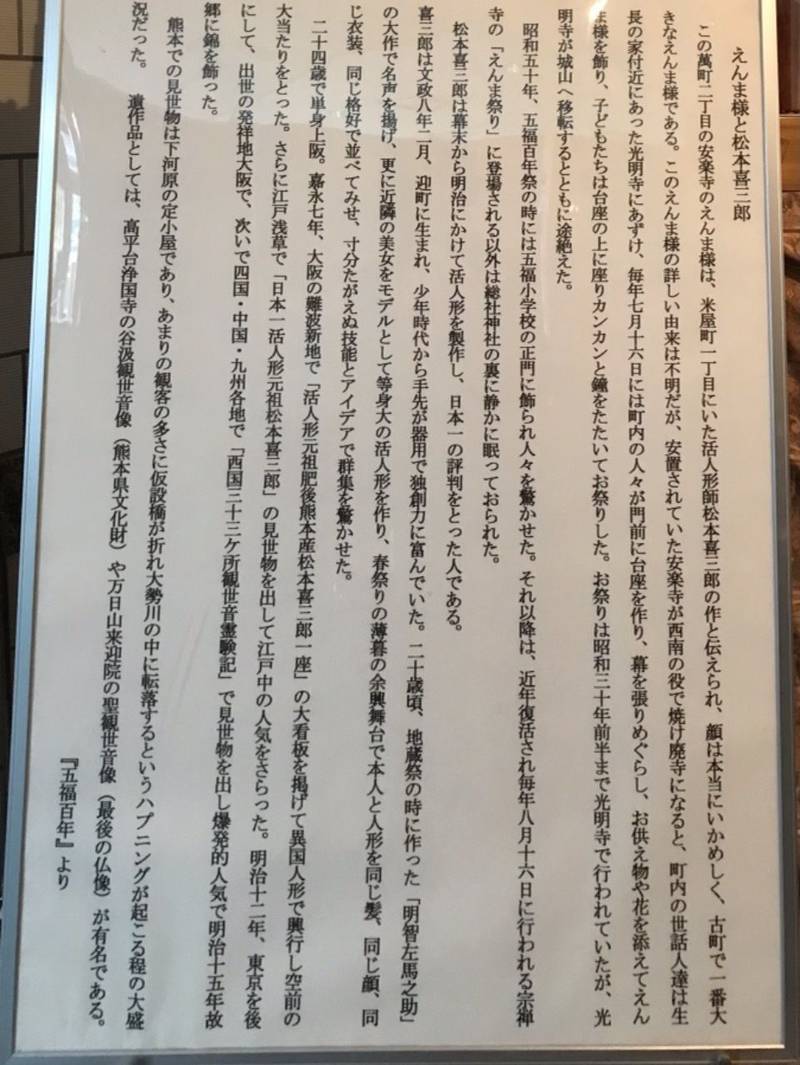 えんま様と松本喜三郎
この萬町二丁目の安楽寺のえんま様は、米屋町一丁目にいた活人形師松本喜三郎の作と伝えられ、顔は本当にいかめしく、古町で一番大
きなえんま様である。このえんま様の詳しい由来は不明だが、安置されていた安楽寺が西南の役で焼け廃寺になると、町内の世話人達は生
長の家付近にあった光明寺にあずけ、毎年七月十六日には町内の人々が門前に台座を作り、幕を張りめぐらし、お供え物や花を添えてえん
ま様を飾り、子どもたちは台座の上に座りカンカンと鐘をたたいてお祭りした。お祭りは昭和三十年前半まで光明寺で行われていたが、光
明寺が城山へ移転するとともに途絶えた。
昭和五十年、五福百年祭の時には五福小学校の正門に飾られ人々を驚かせた。それ以降は、近年復活され毎年八月十六日に行われる宗禅
寺の「えんま祭り」に登場される以外は総社神社の裏に静かに眠っておられた。
松本喜三郎は幕末から明治にかけて活人形を製作し、日本一の評判をとった人である。
喜三郎は文政八年二月、迎町に生まれ、少年時代から手先が器用で独創力に富んでいた。二十歳頃、地蔵祭の時に作った「明智左馬之助」
の大作で名声を揚げ、更に近隣の美女をモデルとして等身大の活人形を作り、春祭りの薄暮の余興舞台で本人と人形を同じ髪、同じ顔、同
じ衣装、同じ格好で並べてみせ、寸分たがえぬ技能とアイデアで群集を驚かせた。
二十四歳で単身上阪。嘉永七年、大阪の難波新地で「活人形元祖肥後熊本産松本喜三郎一座」の大看板を掲げて異国人形で興行し空前の
大当たりをとった。さらに江戸浅草で「日本一活人形元祖松本喜三郎」の見世物を出して江戸中の人気をさらった。明治十二年、東京を後
にして、出世の発祥地大阪で、次いで四国・中国・九州各地で「西国三十三ケ所観世音霊験記」で見世物を出し爆発的人気で明治十五年故
郷に錦を飾った。
熊本での見世物は下河原の定小屋であり、あまりの観客の多さに仮設橋が折れ大勢川の中に転落するというハプニングが起こる程の大盛
況だった。　遺作品としては、高平台浄国寺の谷汲観世音像（熊本県文化財）や万日山来迎院の聖観世音像（最後の仏像）が有名である。
『五福百年』より